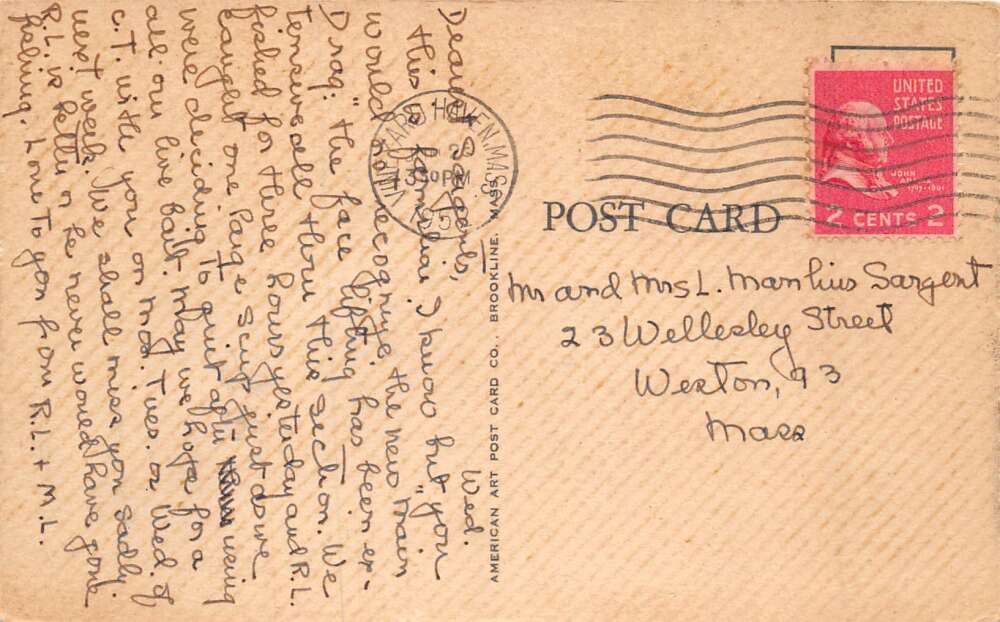 Wed.
Dearest Sargents,
this is familiar I know but "you
would not recognize the new Main
Drag: the face lifting has been ex-
tensive all thru this section. We
fished for three hours yesterday and R.L.
caught one large scup just as we
were deciding to quit after using
all our live bait. May we hope for a
C.T. with you on Mod. Tues. or Wed. of
next week. We shall miss you sadly.
R.L. is better or he never would have gone
fishing. Love to you from R.L. + M.L.
VINEYARD HAVEN, MASS.
4 30 PM
AMERICAN ART POST CARD CO., BROOKLINE, MASS.
POST CARD
UNITED
STATES
POSTAGE
JOHN
2 CENTS 2
Mr and Mrs L. Manlius Sargent
23 Wellesley Street
Weston, 93
Mass